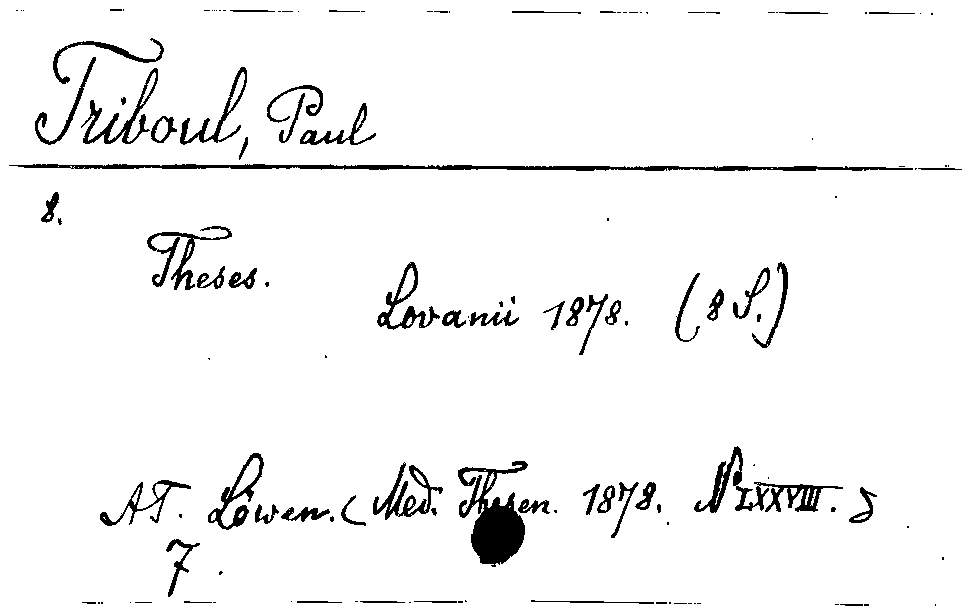 Triboul, Paul
8.
Theses.
Lovanii 1878. (8 S.)
AT. Löwen. (Med. Thesen. 1878. N LXXVIII.)
7.